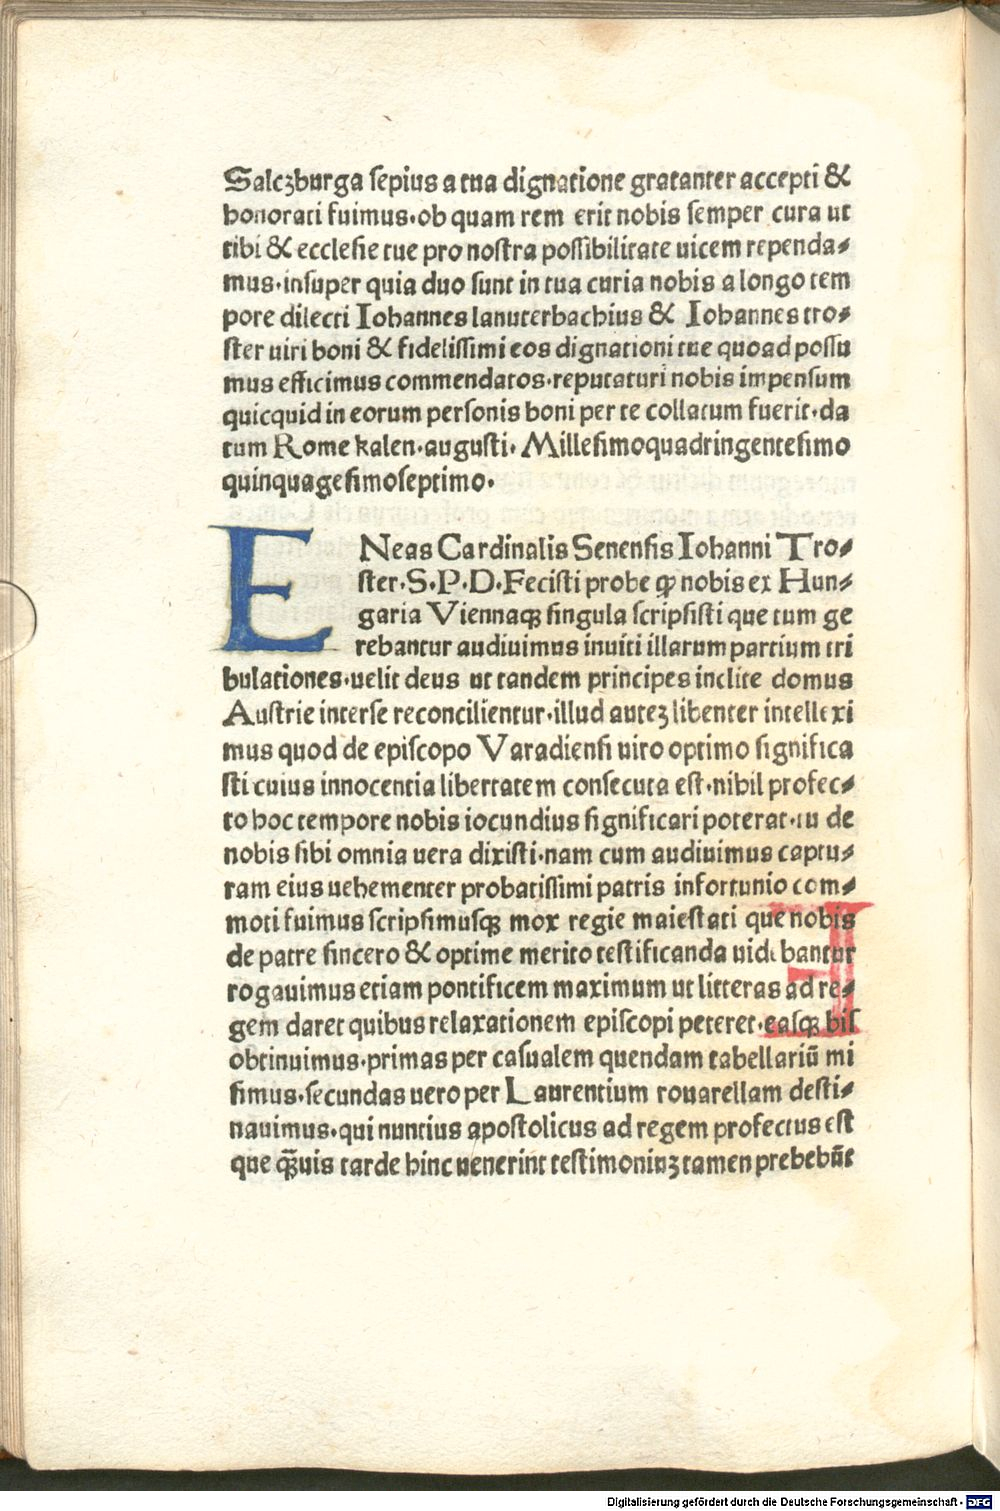 Salczburga sepius a tua dignatione gratanter accepti &
honorati fuimus·ob quam rem erit nobis semper cura ut
tibi & ecclesie tue pro nostra possibilitate uicem rependa⸗
mus·insuper quia duo sunt in tua curia nobis a longo tem
pore dilecti Iohannes lanuterbachius & Iohannes tro⸗
ster uiri boni & fidelissimi eos dignationi tue quoad possu
mus efficimus commendatos·reputaturi nobis impensum
quicquid in eorum personis boni per te collatum fuerit·da
tum Rome kalen·augusti· Millesimoquadringentesimo
quinquagesimoseptimo·
ENeas Cardinalis Senensis Iohanni Tro⸗
ster·S·P·D·Fecisti probe ꝙ nobis ex Hun⸗
garia Viennaqꝫ singula scripsisti que tum ge
rebantur audiuimus inuiti illarum partium tri
bulationes·uelit deus ut tandem principes inclite domus
Austrie interse reconcilientur·illud auteꝫ libenter intellexi
mus quod de episcopo Varadiensi uiro optimo significa
sti cuius innocentia libertatem consecuta est·nihil profec⸗
to hoc tempore nobis iocundius significari poterat·tu de
nobis sibi omnia uera dixisti·nam cum audiuimus captu⸗
ram eius uehementer probatissimi patris infortunio com⸗
moti fuimus scripsimusqꝫ mox regie maiestati que nobis
de patre sincero & optime merito testificanda uidebantur
rogauimus etiam pontificem maximum ut litteras ad re⸗
gem daret quibus relaxationem episcopi peteret·easqꝫ bis
obtinuimus·primas per casualem quendam tabellariū mi
simus·secundas uero per Laurentium rouarellam desti⸗
nauimus·qui nuntius apostolicus ad regem profectus est
que qͣ̄uis tarde hinc uenerint testimoniuꝫ tamen prebebūt
Digitalisierung gefördert durch die Deutsche Forschungsgemeinschaft - DFG